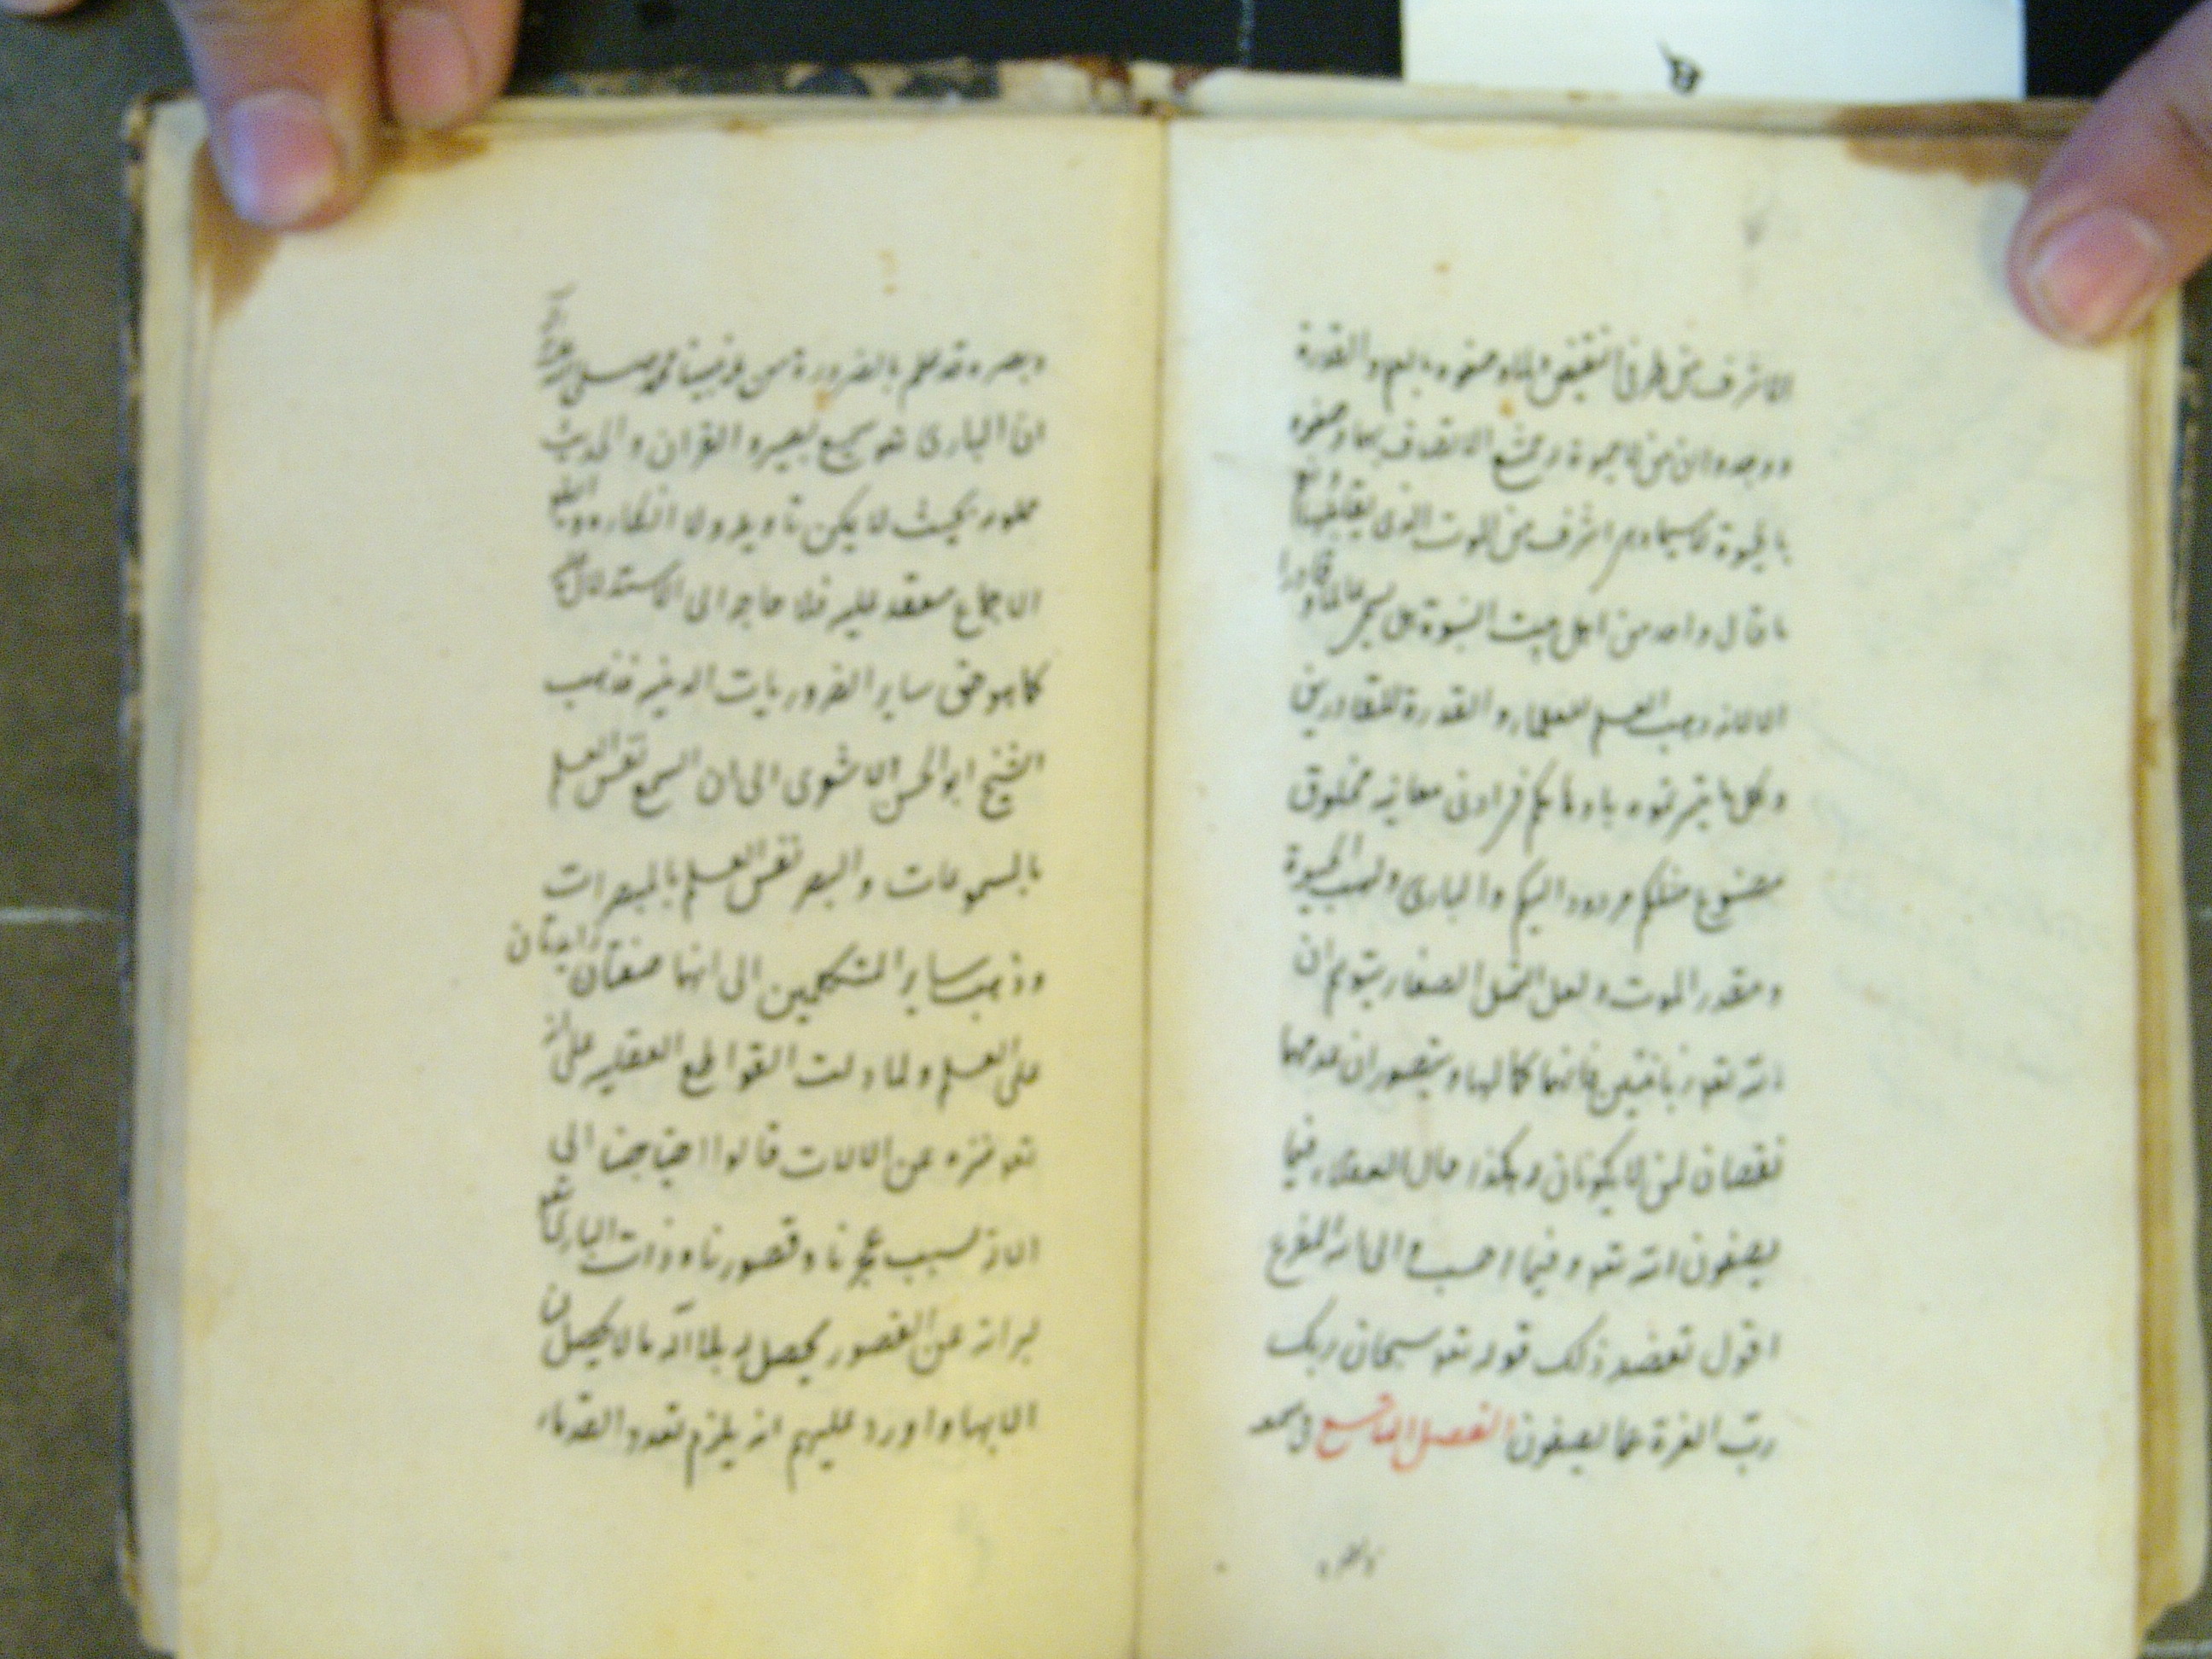 الاشرف من طرفى النقيض وصفوه بالعلم والقدرة
ووجدوا ان من لا حيوة له يمتنع الاتصاف بهما وصفوه
بالحيوة لا سيما وهى اشرف من الموت الذى يقابلها ونعم
ما قال واحد من اهل بيت النبوة هل سمى عالما وقادرا
الا لانه وهب العلم للعلماء والقدرة للقادرين
وكل ما ميزتموه باوهامكم فى ادق معانيه مخلوق
مصنوع مثلكم مردود اليكم والبارى واهب الحيوة
ومقدر الموت ولعل النمل الصغار يتوهم ان
لله تعو زبانيتين فانهما كمالها ويتصور ان عدمهما
نقصان لمن لا يكونان له هكذا حال العقلاء فيما
يصفون الله تعو به فيما احسب والى الله المفزع
اقول تعضد ذلك قوله تعو سبحان ربك
رب العزة عما يصفون الفصل التاسع فى سمعه
وبصره قد علم بالضرورة من دين نبينا محمد صلى الله عليه
ان البارى تعو سميع بصير والقران والحديث
مملو به بحيث لا يمكن تاويله ولا انكاره وايضا
الاجماع منعقد عليه فلا حاجه الى الاستدلال عليه
كما هو حق ساير الضروريات الدينيه فذهب
الشيخ ابو الحسن الاشعرى الى ان السمع نفس العلم
بالمسموعات والبصر نفس العلم بالمبصرات
وذهب ساير المتكلمين الى انهما صفتان زايدتان
على العلم ولما دلت القواطع العقليه على انه
تعو منزه عن الالات قالوا احتياجنا الى
الالة بسبب عجزنا وقصورنا وذات البارى تعو
لبرائته عن القصور يحصل له بلا آلة ما لا يحصل لنا
الا بها واورد عليهم انه يلزم تعدد القدماء